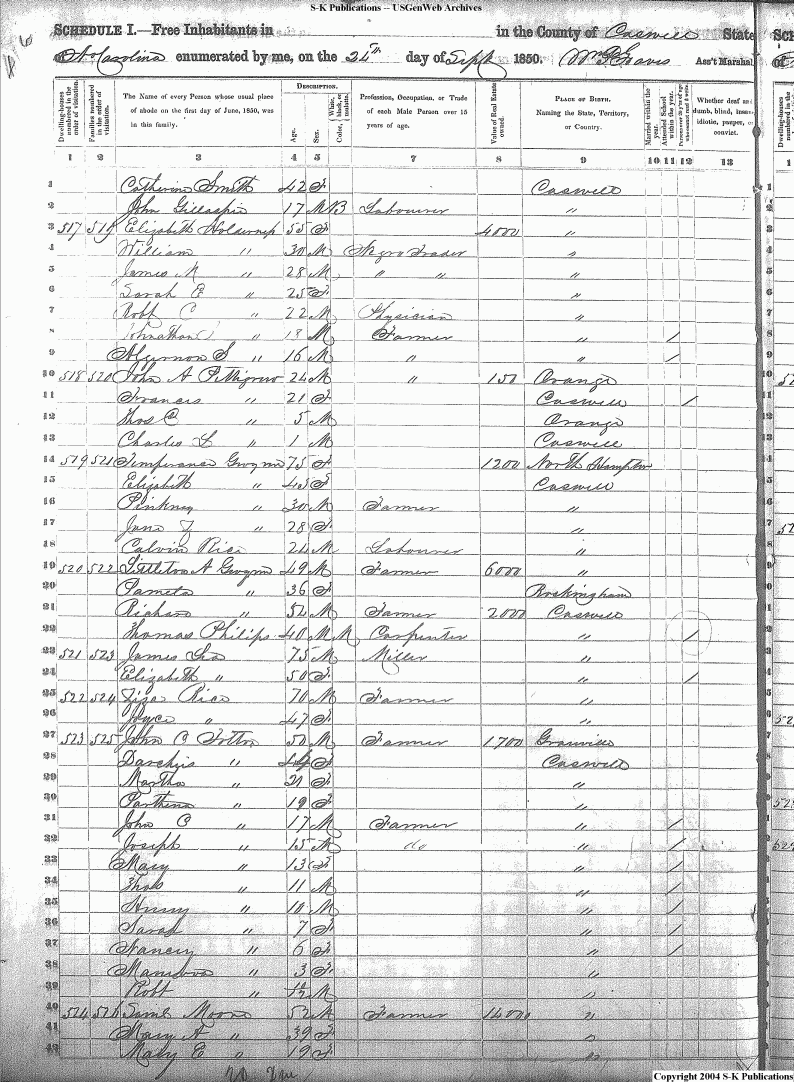 S-K Publications -- USGenWeb Archives
SCHEDULE I.—Free Inhabitants in in the County of Caswell State
of N. Carolina enumerated by me, on the 24th day of Sept 1850. Ass't Marshal.
Dwelling-houses numbered in the order of visitation.
Families numbered in the order of visitation.
The Name of every Person whose usual place of abode on the first day of June, 1850, was in this family.
DESCRIPTION.
Age.
Sex.
Color, White, black, or mulatto.
Profession, Occupation, or Trade of each Male Person over 15 years of age.
Value of Real Estate owned.
PLACE OF BIRTH. Naming the State, Territory, or Country.
Married within the year.
Attended School within the year.
Persons over 20 y'rs of age who cannot read & write.
Whether deaf and dumb, blind, insane, idiotic, pauper, or convict.
1 2 3 4 5 6 7 8 9 10 11 12 13
1 Catherine Smith 42 F Caswell 1
2 John Gillaspie 17 M B Labourer " 2
3 517 519 Elizabeth 55 F 4000 " 3
4 William " 30 M Negro Trader "
5 James M " 28 M " " "
6 Sarah E " 25 F "
7 Robt C " 22 M Physician "
8 Johnathan " 18 M Farmer " /
9 Algernon S " 16 M " " /
10 518 520 John A Pettigrew 24 M " 150 Orange
11 Frances " 21 F Caswell /
12 Thos C " 5 M Orange
13 Charles L " 1 M Caswell
14 519 521 Temperance Gwynn 75 F 1200 North Hampton
15 Elizabeth " F Caswell
16 Pinkney " 30 M Farmer "
17 Jane " 28 F "
18 Calvin Rice 24 M Labourer "
19 520 522 Littleton A Gwynn 49 M Farmer 6000 "
20 Pamela " 36 F Rockingham
21 Richard " 54 M Farmer 2000 Caswell
22 Thomas Philips 40 M M Carpenter " /
23 521 523 James 75 M Miller "
24 Elizabeth " 50 F " /
25 522 524 Rice 70 M Farmer "
26 Joyce " 47 F "
27 523 525 John C Totten 50 M Farmer 1700 Granville
28 " 44 F Caswell
29 Martha " 21 F "
30 Parthena " 19 F "
31 John C " 17 M Farmer " /
32 Joseph " 15 M do " /
33 Mary " 13 F " /
34 Thos " 11 M " /
35 Henry " 10 M " /
36 Sarah " 7 F " /
37 Nancy " 6 F " /
38 " 3 F "
39 Robt " M "
40 524 526 Saml Moore 52 M Farmer 1400 "
41 Mary A " 39 F "
42 Mary E " 19 F "
Copyright 2004 S-K Publications